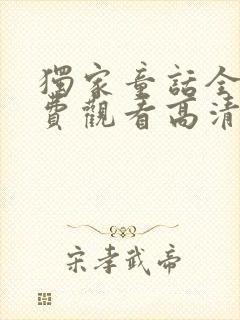 獨家童話全
費觀看高清
宋孝武帝